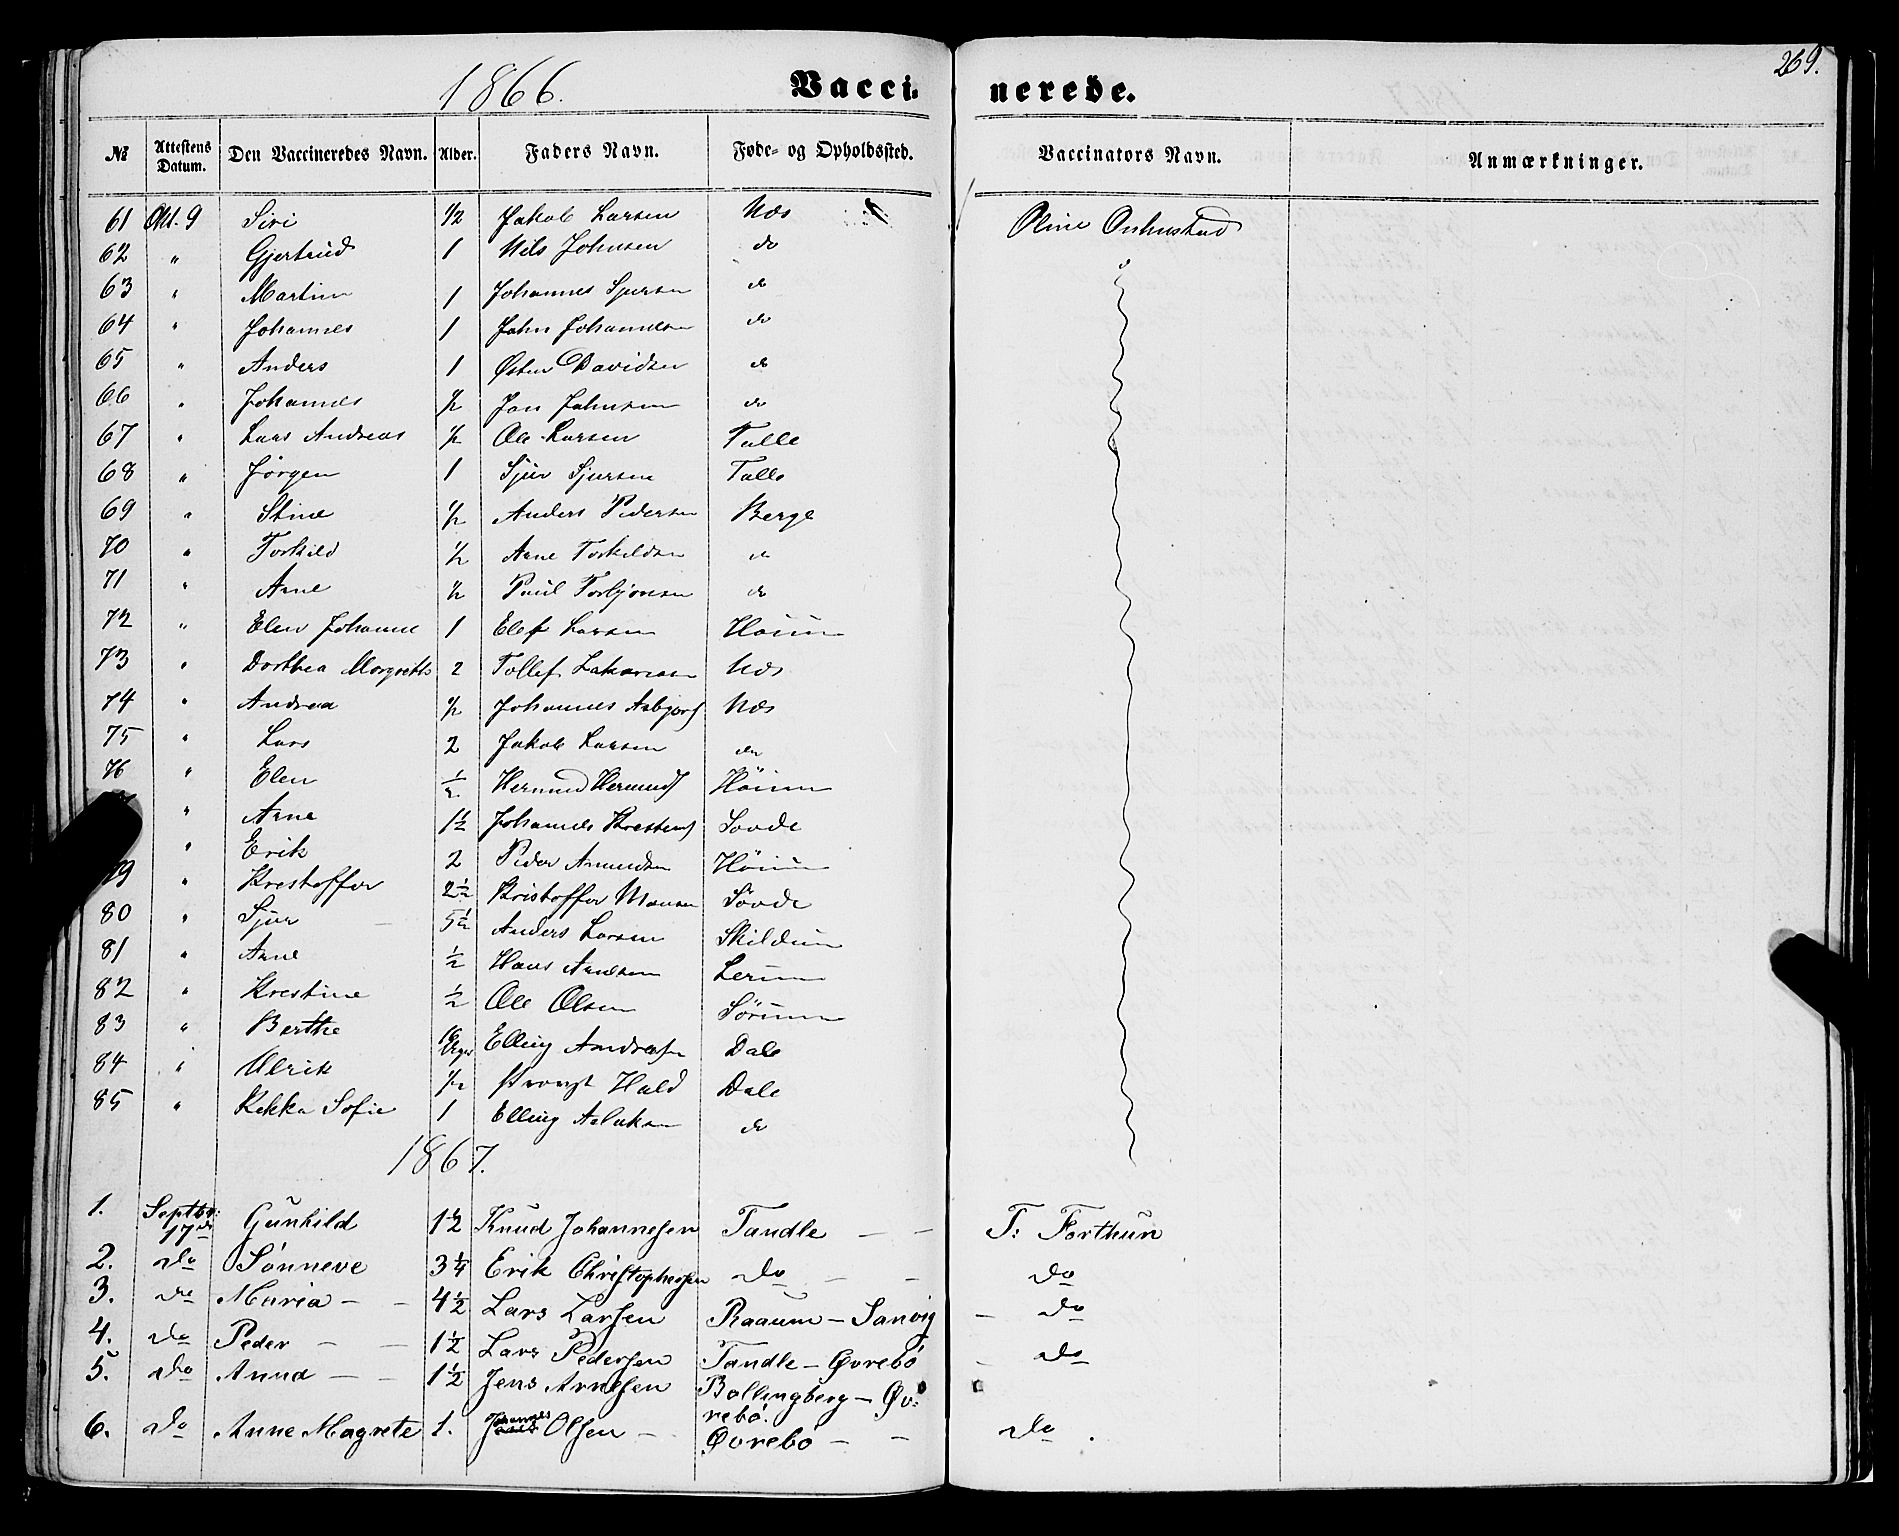 269.
1866. Vacci- nerede.
№ Attestens Datum. Den Vaccineredes Navn. Alder. Faders Navn. Føde- og Opholdssted. Vaccinators Navn. Anmærkninger.
61 Okt. 9 Siri 1/2 Jakob Larsen Næs Oline
62 " Gjertrud 1 Nils Johnsen do
63 " Martin 1 Johannes Sjursen do
64 " Johannes 1 John Johannesen do
65 " Anders 1 Østen Davidsen do
66 " Johannes 1/2 Jon Johnsen do
67 " Lars Andreas 1/2 Ole Larsen Talle
68 " Jørgen 1 Sjur Sjursen Talle
69 " Stine 1/2 Anders Pedersen Berge
70 " Torkild 1/2 Arne Torkildsen do
71 " Arne 1/2 Paul Torbjørnsen do
72 " Elen Johanne 1 Elef Larsen Høium
73 " Dorthea Morgrethe 2 Tollef Zakarisen Næs
74 " Andrea 1/2 Johannes Asbjørs Næs
75 " Lars 2 Jakob Larsen do
76 " Elen 1/2 Hermund Hermunds Höium
" Arne 1 1/2 Johannes Krestens Sovde
" Erik 2 Peder Amundsen Höium
79 " Krestoffer 2 1/2 Kristoffer Monsen Sovde
80 " Sjur 5 1/2 Anders Larsen Skildum
81 " Arne 1/2 Hans Arnesen Lerum
82 " Krestine 1/2 Ole Olsen Sörum
83 " Berthe 16 Uger Elling Andresen Dale
84 " Ulrik 1/2 Provst Hald Dale
85 " Rekka Sofie 1 Elling Aslaksen do
1867.
1. Septbr: 17de Gunhild 1 1/2 Knud Johannesen Tandle — — T: Forthun
2. do Sønneve 3 1/4 Erik Christophersen do — — do
3. do Maria — — 4 1/2 Lars Larsen Raaum — Sanvig — do
4. do Peder — — 1 1/2 Lars Pedersen Tandle — Øvrebö — do
5. do Anna — — 1 1/2 Jens Arnesen Bollingberg — Øv:
rebö.
6. do Anne Magrete 1. Johannes Olsen — Øvrebö — — do .